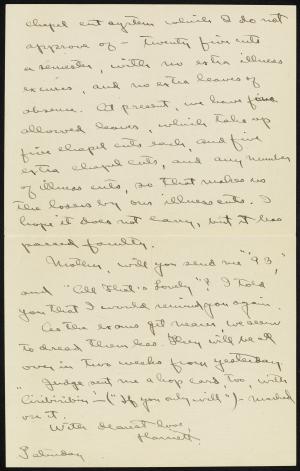 chapel cut system which I do not
approve of – twenty five cuts
a semester, with no extra illness
excuses, and no extra leaves of
absence. At present, we have five
allowed leaves, which take up
five chapel cuts each, and five
extra chapel cuts, and any number
of illness cuts, so that makes us
the losers by our illness cuts. I
hope it does not carry, but it has
passed faculty.
Mother, will you send me "93",
and "All that's Lovely"? I told
you that I would remind you again.
As the exams get nearer, we seem
to dread them less. They will be all
over in two weeks from yesterday.
Judge sent me a hop card too, with
Ciribiribin – ("If you only will") – marked
on it.
With dearest love,
Harriett
Saturday